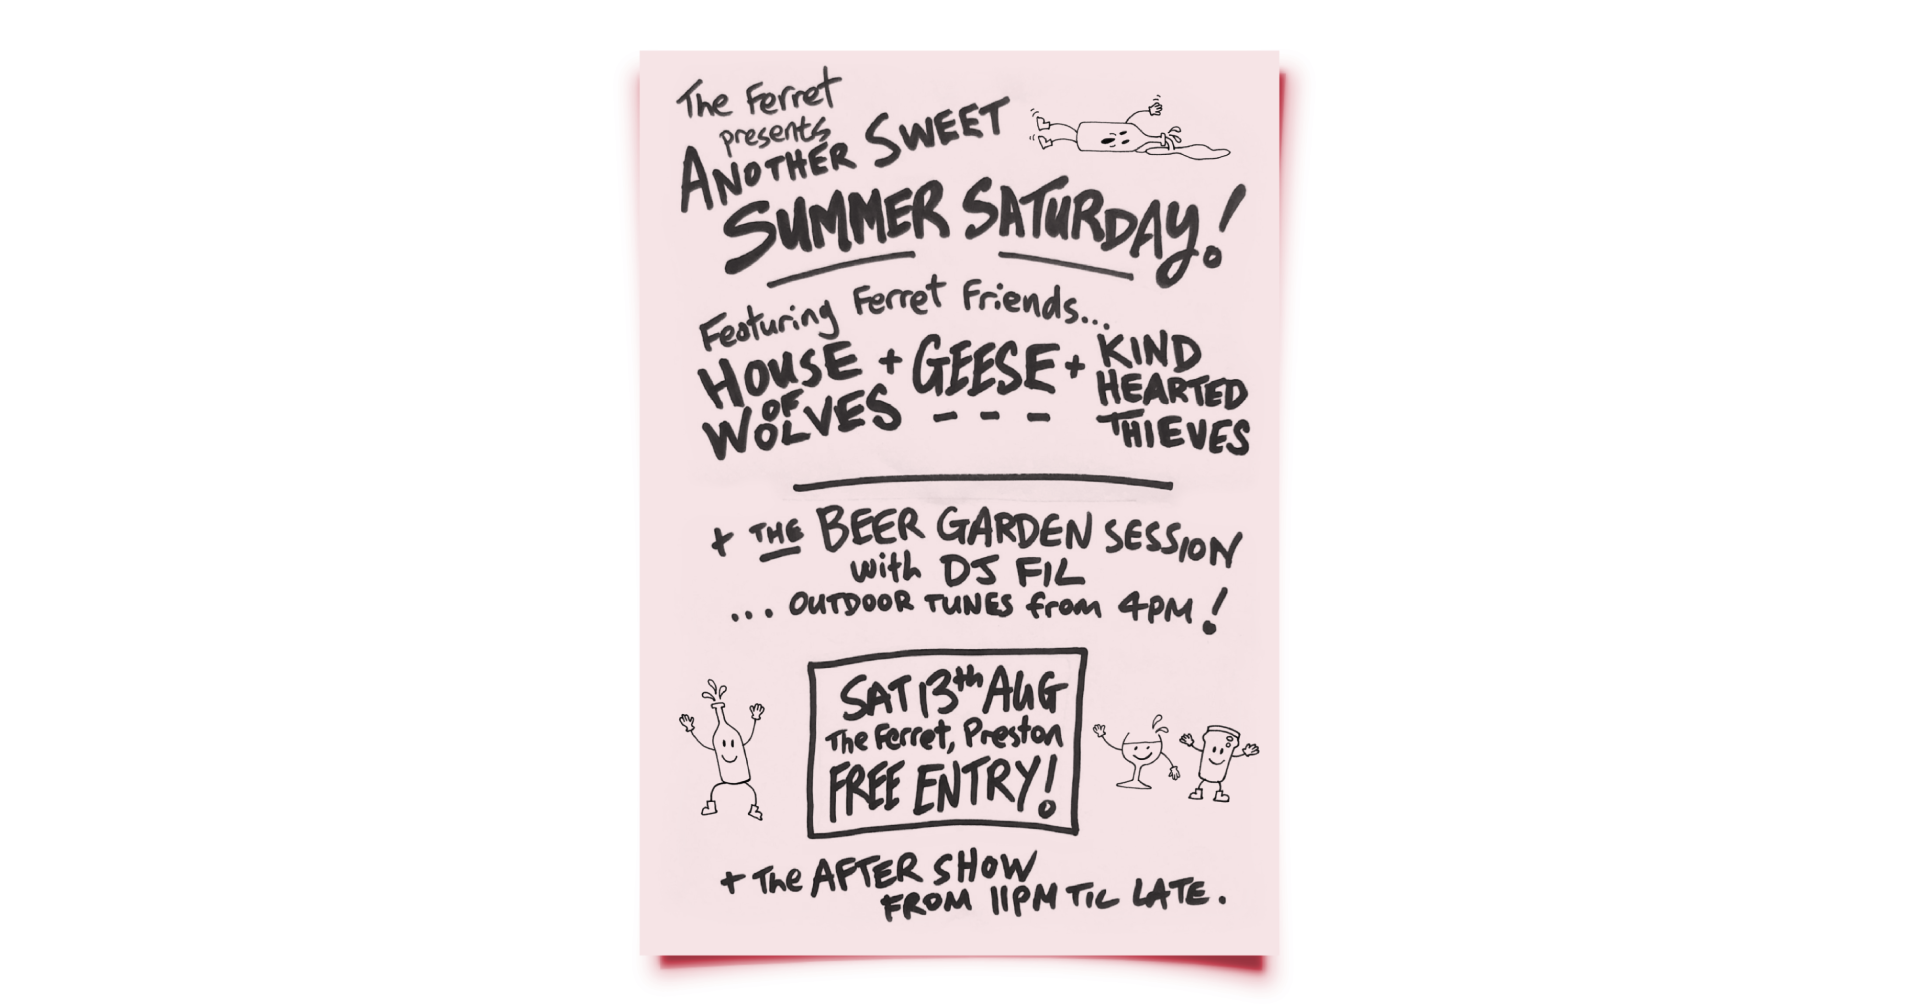 The Ferret
presents
ANOTHER SWEET
SUMMER SATURDAY!
Featuring Ferret Friends...
HOUSE OF WOLVES + GEESE + KIND HEARTED THIEVES
+ THE BEER GARDEN SESSION
with DJ FIL
... OUTDOOR TUNES from 4PM!
SAT 13th AUG
The Ferret, Preston
FREE ENTRY!
+ The AFTER SHOW
FROM 11PM TIL LATE.